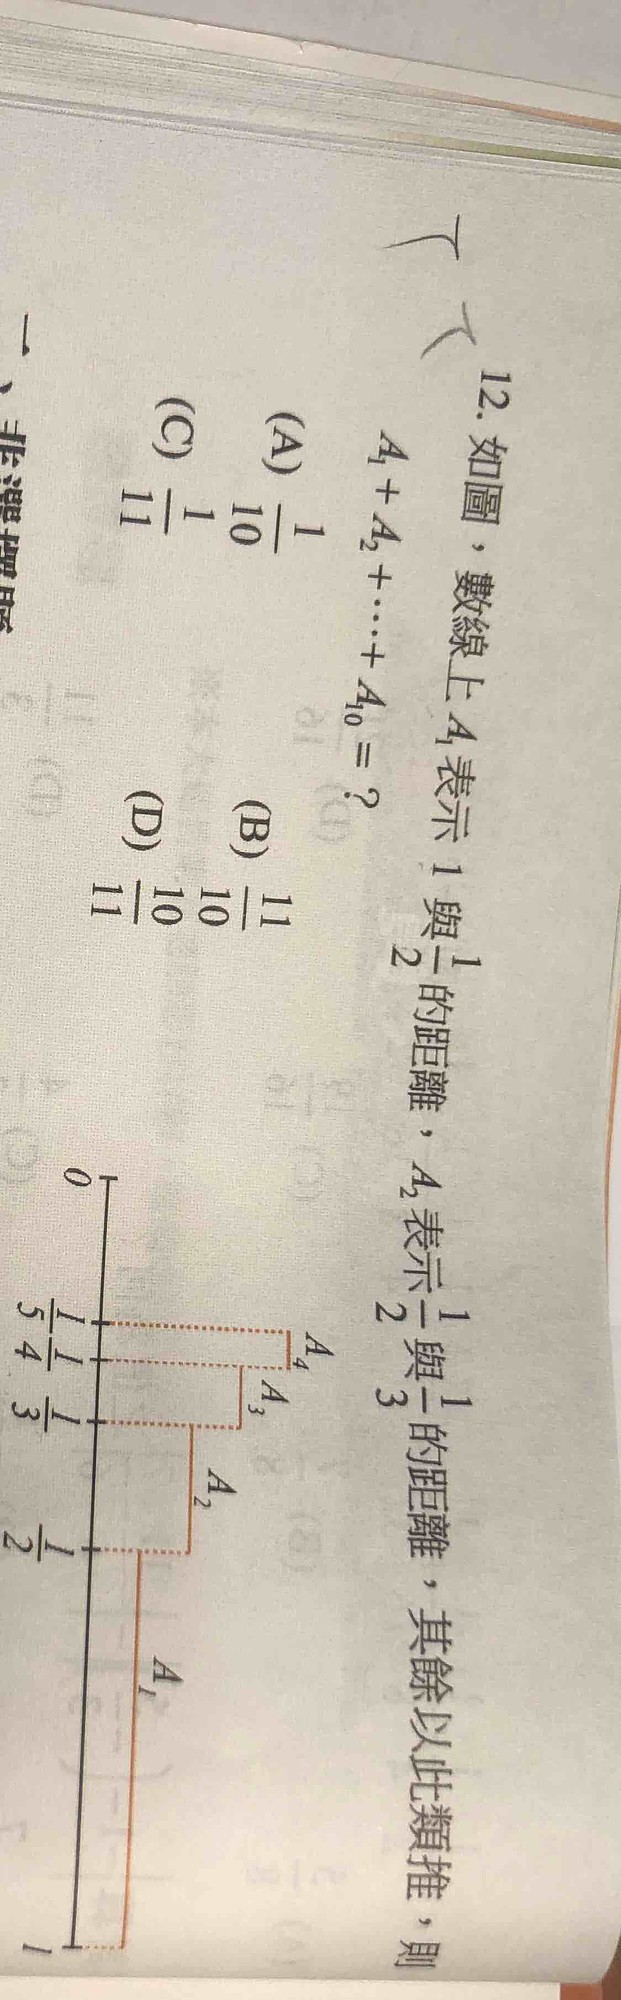 12. 如圖，數線上 A₁ 表示 1 與 1/2 的距離，A₂ 表示 1/2 與 1/3 的距離，其餘以此類推，則
A₁ + A₂ + … + A₁₀ = ?
(A) 1/10 (B) 11/10
(C) 1/11 (D) 10/11
A₄
A₃
A₂
A₁
0 1/5 1/4 1/3 1/2 1
一、非選擇題